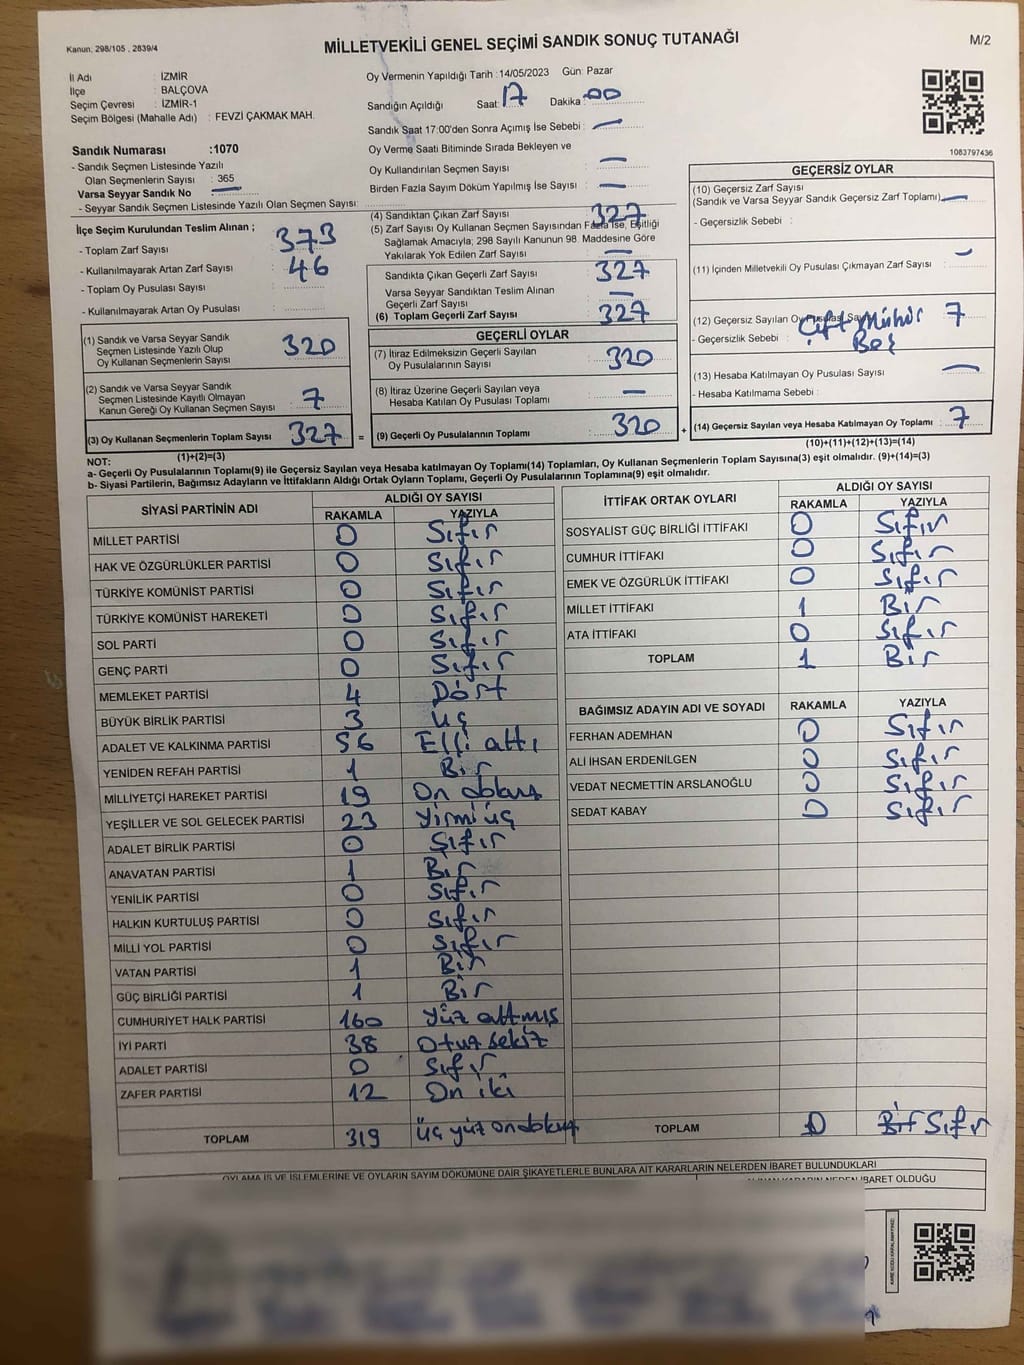 Kanun, 298/105 , 2839/4
MİLLETVEKİLİ GENEL SEÇİMİ SANDIK SONUÇ TUTANAĞI
M/2
İl Adı : İZMİR
İlçe : BALÇOVA
Seçim Çevresi : İZMİR-1
Seçim Bölgesi (Mahalle Adı) : FEVZİ ÇAKMAK MAH.
Sandık Numarası :1070
- Sandık Seçmen Listesinde Yazılı
Olan Seçmenlerin Sayısı : 365
Varsa Seyyar Sandık No —
- Seyyar Sandık Seçmen Listesinde Yazılı Olan Seçmen Sayısı:
Oy Vermenin Yapıldığı Tarih :14/05/2023 Gün: Pazar
Sandığın Açıldığı Saat: 17 Dakika :00
Sandık Saat 17:00'den Sonra Açımış İse Sebebi : —
Oy Verme Saati Bitiminde Sırada Bekleyen ve
Oy Kullandırılan Seçmen Sayısı : —
Birden Fazla Sayım Döküm Yapılmış İse Sayısı : —
1083797436
İlçe Seçim Kurulundan Teslim Alınan ;
- Toplam Zarf Sayısı : 373
- Kullanılmayarak Artan Zarf Sayısı : 46
- Toplam Oy Pusulası Sayısı :
- Kullanılmayarak Artan Oy Pusulası :
(1) Sandık ve Varsa Seyyar Sandık
Seçmen Listesinde Yazılı Olup
Oy Kullanan Seçmenlerin Sayısı : 320
(2) Sandık ve Varsa Seyyar Sandık
Seçmen Listesinde Kayıtlı Olmayan
Kanun Gereği Oy Kullanan Seçmen Sayısı : 7
(3) Oy Kullanan Seçmenlerin Toplam Sayısı : 327
(1)+(2)=(3)
(4) Sandıktan Çıkan Zarf Sayısı : 327
(5) Zarf Sayısı Oy Kullanan Seçmen Sayısından Fazla İse, Eşitliği
Sağlamak Amacıyla; 298 Sayılı Kanunun 98. Maddesine Göre
Yakılarak Yok Edilen Zarf Sayısı : —
Sandıkta Çıkan Geçerli Zarf Sayısı : 327
Varsa Seyyar Sandıktan Teslim Alınan
Geçerli Zarf Sayısı : —
(6) Toplam Geçerli Zarf Sayısı : 327
GEÇERLİ OYLAR
(7) İtiraz Edilmeksizin Geçerli Sayılan
Oy Pusulasının Sayısı : 320
(8) İtiraz Üzerine Geçerli Sayılan veya
Hesaba Katılan Oy Pusulası Toplamı : —
= (9) Geçerli Oy Pusulalarının Toplamı : 320 +
GEÇERSİZ OYLAR
(10) Geçersiz Zarf Sayısı
(Sandık ve Varsa Seyyar Sandık Geçersiz Zarf Toplamı) —
- Geçersizlik Sebebi :
(11) İçinden Milletvekili Oy Pusulası Çıkmayan Zarf Sayısı : —
(12) Geçersiz Sayılan Oy Pusulası Sayısı 7
- Geçersizlik Sebebi : Çift Mühür
Boş
(13) Hesaba Katılmayan Oy Pusulası Sayısı : —
- Hesaba Katılmama Sebebi :
(14) Geçersiz Sayılan veya Hesaba Katılmayan Oy Toplamı : 7
(10)+(11)+(12)+(13)=(14)
NOT:
a- Geçerli Oy Pusulalarının Toplamı(9) ile Geçersiz Sayılan veya Hesaba katılmayan Oy Toplamı(14) Toplamları, Oy Kullanan Seçmenlerin Toplam Sayısına(3) eşit olmalıdır. (9)+(14)=(3)
b- Siyasi Partilerin, Bağımsız Adayların ve İttifakların Aldığı Ortak Oyların Toplamı, Geçerli Oy Pusulalarının Toplamına(9) eşit olmalıdır.
SİYASİ PARTİNİN ADI ALDIĞI OY SAYISI
RAKAMLA YAZIYLA
MİLLET PARTİSİ 0 Sıfır
HAK VE ÖZGÜRLÜKLER PARTİSİ 0 Sıfır
TÜRKİYE KOMÜNİST PARTİSİ 0 Sıfır
TÜRKİYE KOMÜNİST HAREKETİ 0 Sıfır
SOL PARTİ 0 Sıfır
GENÇ PARTİ 0 Sıfır
MEMLEKET PARTİSİ 4 Dört
BÜYÜK BİRLİK PARTİSİ 3 üç
ADALET VE KALKINMA PARTİSİ 56 Elli altı
YENİDEN REFAH PARTİSİ 1 Bir
MİLLİYETÇİ HAREKET PARTİSİ 19 On dokuz
YEŞİLLER VE SOL GELECEK PARTİSİ 23 Yirmi üç
ADALET BİRLİK PARTİSİ 0 Sıfır
ANAVATAN PARTİSİ 1 Bir
YENİLİK PARTİSİ 0 Sıfır
HALKIN KURTULUŞ PARTİSİ 0 Sıfır
MİLLİ YOL PARTİSİ 0 Sıfır
VATAN PARTİSİ 1 Bir
GÜÇ BİRLİĞİ PARTİSİ 1 Bir
CUMHURİYET HALK PARTİSİ 160 Yüz altmış
İYİ PARTİ 38 Otuz sekiz
ADALET PARTİSİ 0 Sıfır
ZAFER PARTİSİ 12 On iki
TOPLAM 319 üç yüz on dokuz
İTTİFAK ORTAK OYLARI ALDIĞI OY SAYISI
RAKAMLA YAZIYLA
SOSYALİST GÜÇ BİRLİĞİ İTTİFAKI 0 Sıfır
CUMHUR İTTİFAKI 0 Sıfır
EMEK VE ÖZGÜRLÜK İTTİFAKI 0 Sıfır
MİLLET İTTİFAKI 1 Bir
ATA İTTİFAKI 0 Sıfır
TOPLAM 1 Bir
BAĞIMSIZ ADAYIN ADI VE SOYADI RAKAMLA YAZIYLA
FERHAN ADEMHAN 0 Sıfır
ALİ İHSAN ERDENİLGEN 0 Sıfır
VEDAT NECMETTİN ARSLANOĞLU 0 Sıfır
SEDAT KABAY 0 Sıfır
TOPLAM 0 Bir Sıfır
OYLAMA İŞ VE İŞLEMLERİNE VE OYLARIN SAYIM DÖKÜMÜNE DAİR ŞİKAYETLERLE BUNLARA AİT KARARLARIN NELERDEN İBARET BULUNDUKLARI
ALINAN KARARIN NEDEN İBARET OLDUĞU